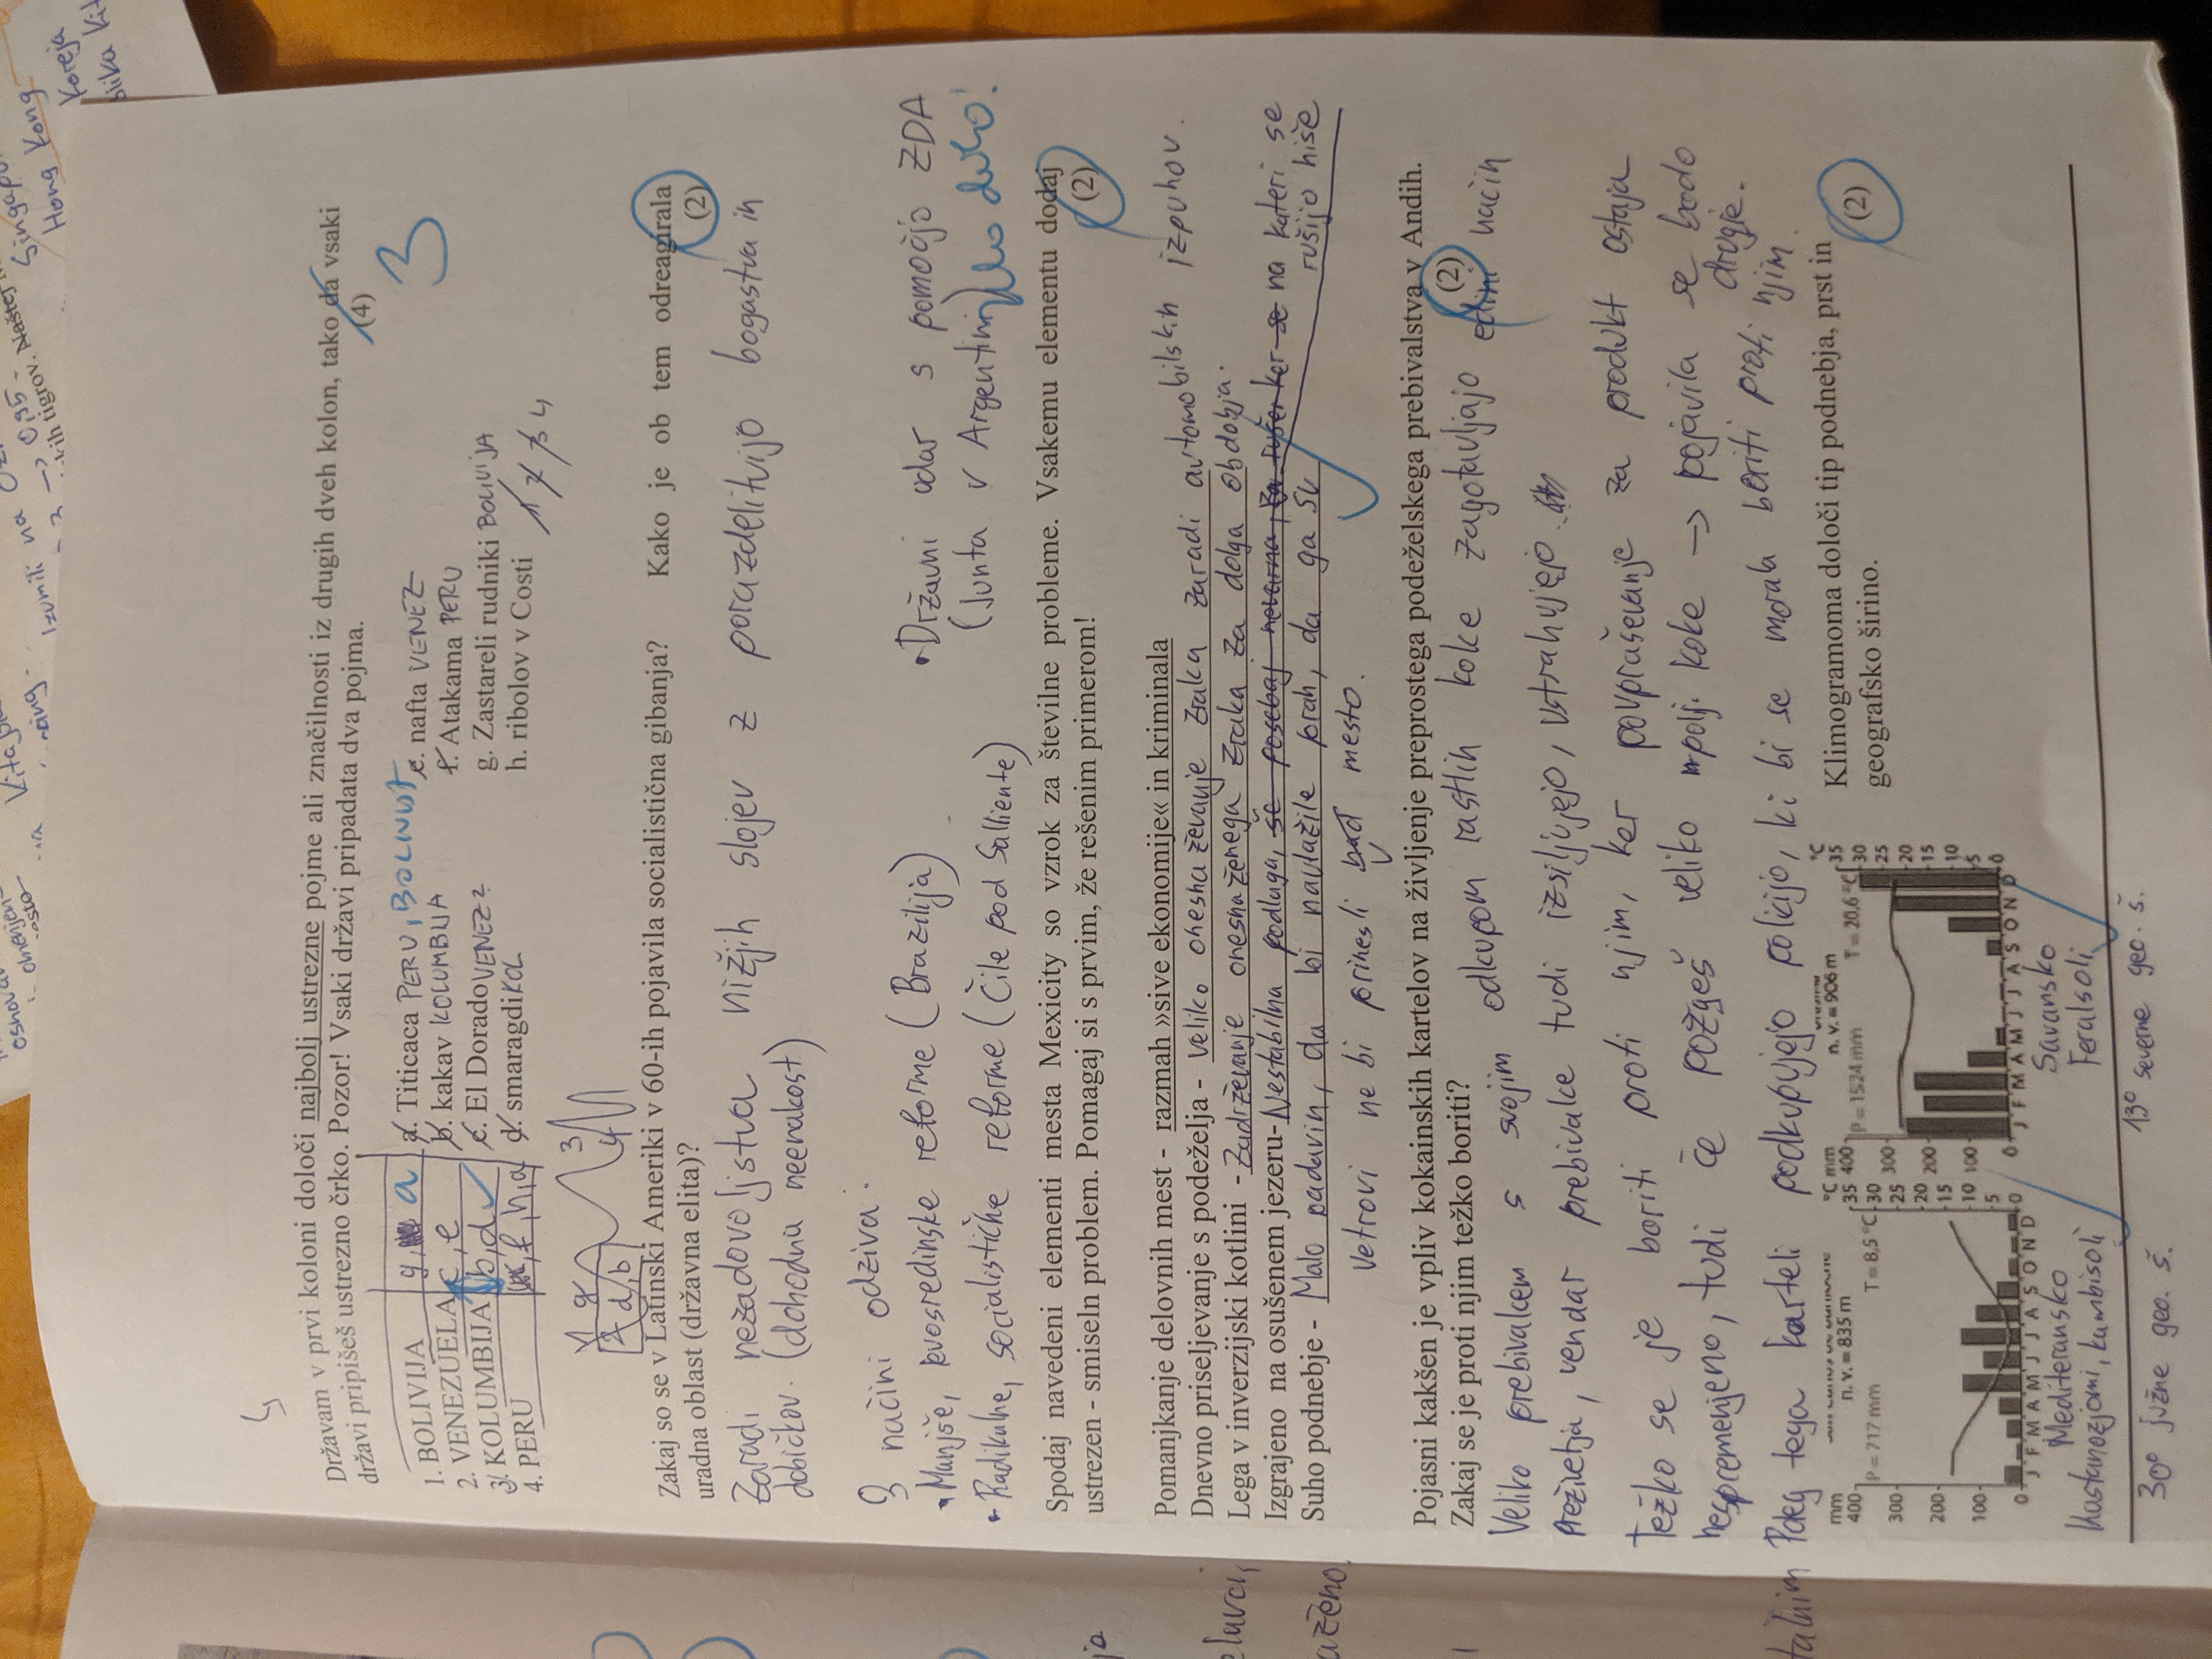 osnova
omenjen-
mesto
Kitajs
ning.
Izumili na
→ 0,95
kih tigrov. Naštej
Singapu
Hong Kong
Koreja
blika Kit
Državam v prvi koloni določi najbolj ustrezne pojme ali značilnosti iz drugih dveh kolon, tako da vsaki
državi pripišeš ustrezno črko. Pozor! Vsaki državi pripadata dva pojma. (4)
3
1. BOLIVIJA g, a
2. VENEZUELA c, e
3. KOLUMBIJA b, d
4. PERU f, h, a
a. Titicaca PERU, BOLIVIJA
b. kakav KOLUMBIJA
c. El Dorado VENEZ?
d. smaragdi KOL
e. nafta VENEZ
f. Atakama PERU
g. Zastareli rudniki BOLIVIJA
h. ribolov v Costi
1 2 3 4
1 g 3
2 d, b 4
Zakaj so se v Latinski Ameriki v 60-ih pojavila socialistična gibanja? Kako je ob tem odreagirala
uradna oblast (državna elita)? (2)
Zaradi nezadovoljstva nižjih slojev z porazdelitvijo bogastva in
dobičkov. (dohodna neenakost)
3 načini odziva:
• Manjše, levosredinske reforme (Brazilija)
• Radikalne, socialistične reforme (Čile pod Salliente)
• Državni udar s pomočjo ZDA
(Junta v Argentini)
Spodaj navedeni elementi mesta Mexicity so vzrok za številne probleme. Vsakemu elementu dodaj
ustrezen - smiseln problem. Pomagaj si s prvim, že rešenim primerom! (2)
Pomanjkanje delovnih mest - razmah »sive ekonomije« in kriminala
Dnevno priseljevanje s podeželja - veliko onesnaževanje zraka zaradi avtomobilskih izpuhov.
Lega v inverzijski kotlini - Zadrževanje onesnaženega zraka za dolga obdobja.
Izgrajeno na osušenem jezeru- Nestabilna podlaga, še posebaj nevarna, za rušer ker se na kateri se
rušijo hiše
Suho podnebje - Malo padavin, da bi navlažile prah, da ga su
vetrovi ne bi prinesli nad mesto.
v
Pojasni kakšen je vpliv kokainskih kartelov na življenje preprostega podeželskega prebivalstva v Andih.
Zakaj se je proti njim težko boriti? (2)
Veliko prebivalcem s svojim odkupom rastlin koke zagotavljajo edini način
preživetja, vendar prebivalce tudi izsiljujejo, ustrahujejo.
Težko se je boriti proti njim, ker povpraševanje za produkt ostaja
nespremenjeno, tudi če požgeš veliko polj. koke → pojavila se bodo
drugje.
Poleg tega karteli podkupujejo policijo, ki bi se morala boriti proti njim.
mm
n. v. = 835 m
°C
P = 717 mm
T = 8,5 °C
400
300
200
100
0
35
30
25
20
15
10
5
0
J F M A M J J A S O N D
mm
n. v. = 906 m
°C
P = 1524 mm
T = 20,6 °C
400
300
200
100
0
35
30
25
20
15
10
5
0
J F M A M J J A S O N D
Klimogramoma določi tip podnebja, prst in
geografsko širino. (2)
Mediteransko
Kastanozjomi, kambisoli
30° južne geo. š.
Savansko
Feralsoli
13° severne geo. š.